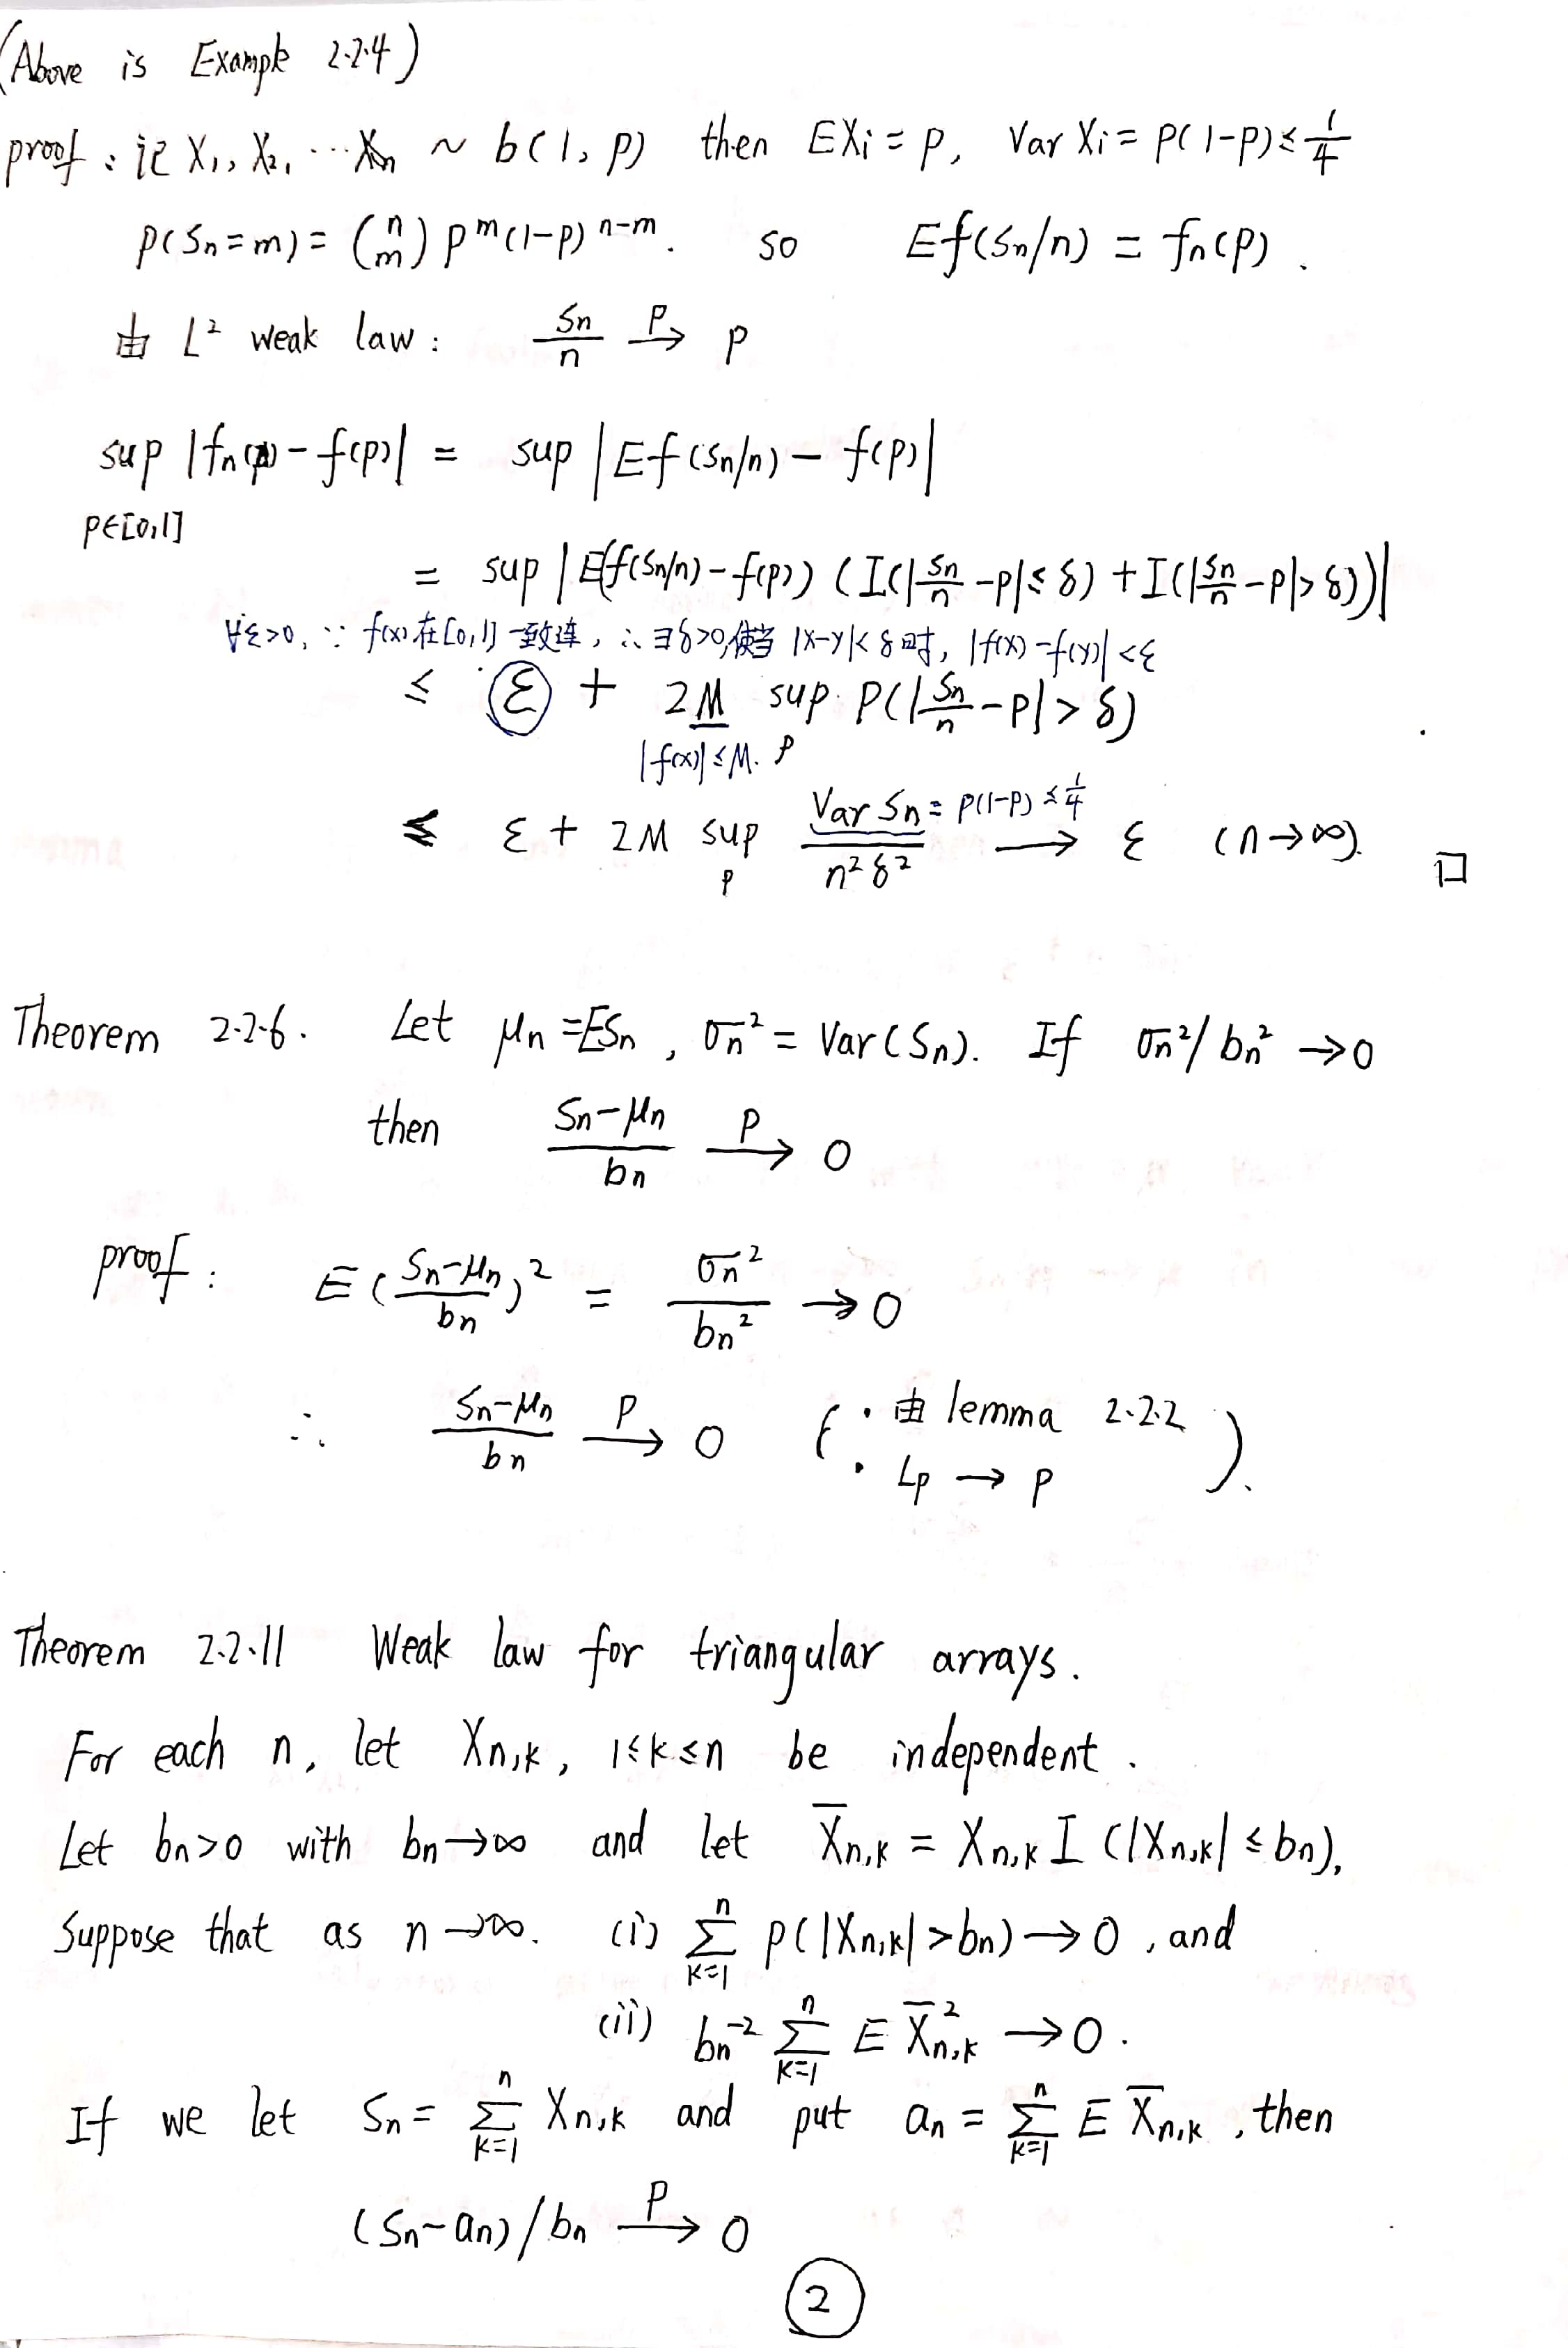 (Above is Example 2.2.4)
proof : 记 X₁, X₂, ⋯ Xn ~ b(1, p) then EXi = p, Var Xi = p(1-p) ≤ 1/4
P(Sn = m) = (n m) p^m (1-p)^{n-m}. so Ef(Sn/n) = fn(p).
由 L² weak law : Sn/n →^P p
sup |fn(p) - f(p)| = sup |Ef(Sn/n) - f(p)|
p∈[0,1]
= sup |E(f(Sn/n) - f(p)) (I(|Sn/n - p| ≤ δ) + I(|Sn/n - p| > δ))|
∀ε>0, ∵ f(x) 在 [0,1] 一致连, ∴ ∃δ>0, 使当 |x-y|< δ 时, |f(x) - f(y)| < ε
≤ ε + 2M sup P(|Sn/n - p| > δ)
|f(x)| ≤ M. p
≤ ε + 2M sup_p Var Sn/(n²δ²) → ε (n→∞). □
= p(1-p) ≤ 1/4
Theorem 2.2.6. Let μn = ESn, σn² = Var(Sn). If σn²/bn² → 0
then (Sn-μn)/bn →^P 0
proof : E((Sn-μn)/bn)² = σn²/bn² → 0
∴ (Sn-μn)/bn →^P 0 ( : 由 lemma 2.2.2
Lp → P ).
Theorem 2.2.11 Weak law for triangular arrays.
For each n, let Xn,k, 1≤k≤n be independent.
Let bn>0 with bn→∞ and let X̄n,k = Xn,k I(|Xn,k| ≤ bn),
Suppose that as n→∞. (i) ∑_{k=1}^n P(|Xn,k| > bn) → 0, and
(ii) bn^{-2} ∑_{k=1}^n E X̄²n,k → 0.
If we let Sn = ∑_{k=1}^n Xn,k and put an = ∑_{k=1}^n E X̄n,k, then
(Sn-an)/bn →^P 0
2